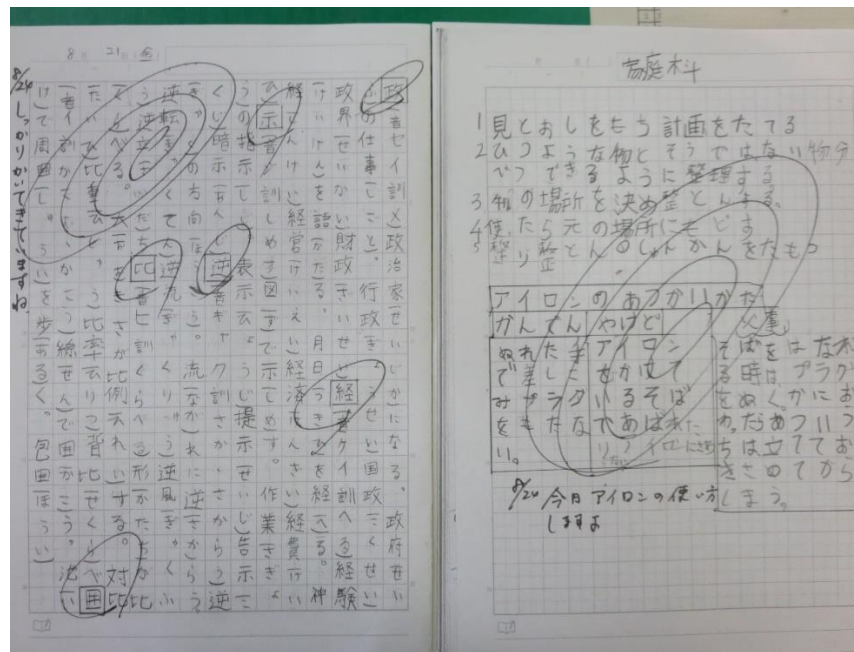 8月21日(金)
政音セイ訓〆政治家せいじかになる。政府せい
ふの仕事しごと。行政ぎょうせい国政こくせい
政界せいかい財政ざいせい 経音ケイ訓へる経験
けいけんを語かたる。月日つきひを経へる。神
経しんけい経営けいえい経済けいざい経費けいひ
示音ジ訓しめす図ずで示しめす。作業さぎょ
うの指示しじ表示ひょうじ提示ていじ告示こ
くじ暗示あんじ 逆音ギャク訓さか・さからう逆
ぎゃくの方向ほうこう。流ながれに逆さからう。
逆転ぎゃくてん逆流ぎゃくりゅう逆風ぎゃくふ
う逆立さかだち 比音ヒ訓くらべる形かたちを比
くらべる。大きさが比例ひれいする。対比
たいひ比重ひじゅう比率ひりつ背比せいくらべ 囲
音イ訓かこむ・かこう線せんで囲かこう。池い
け)で周囲しゅういを歩あるく。包囲ほうい
8/24 しっかりかいてきていますね
家庭科
1 見とおしをもち計画をたてる
2 ひつような物とそうではない物分
べつできるように整理する
3 物の場所を決め整とんする。
4 使ったら元の場所にもどす
5 整り整とん しゅんかんをたもつ
アイロンのあつかいかた
かんでん やけど 火事
ぬれた手で差しこみプラグをもたない。
アイロンをかけているそばであばれ
そばをはなれる時は、プラグをぬく。かにおわったあつい うちは立てておきさめてからしまう。
8/20 今日アイロンの使い方
しますよ